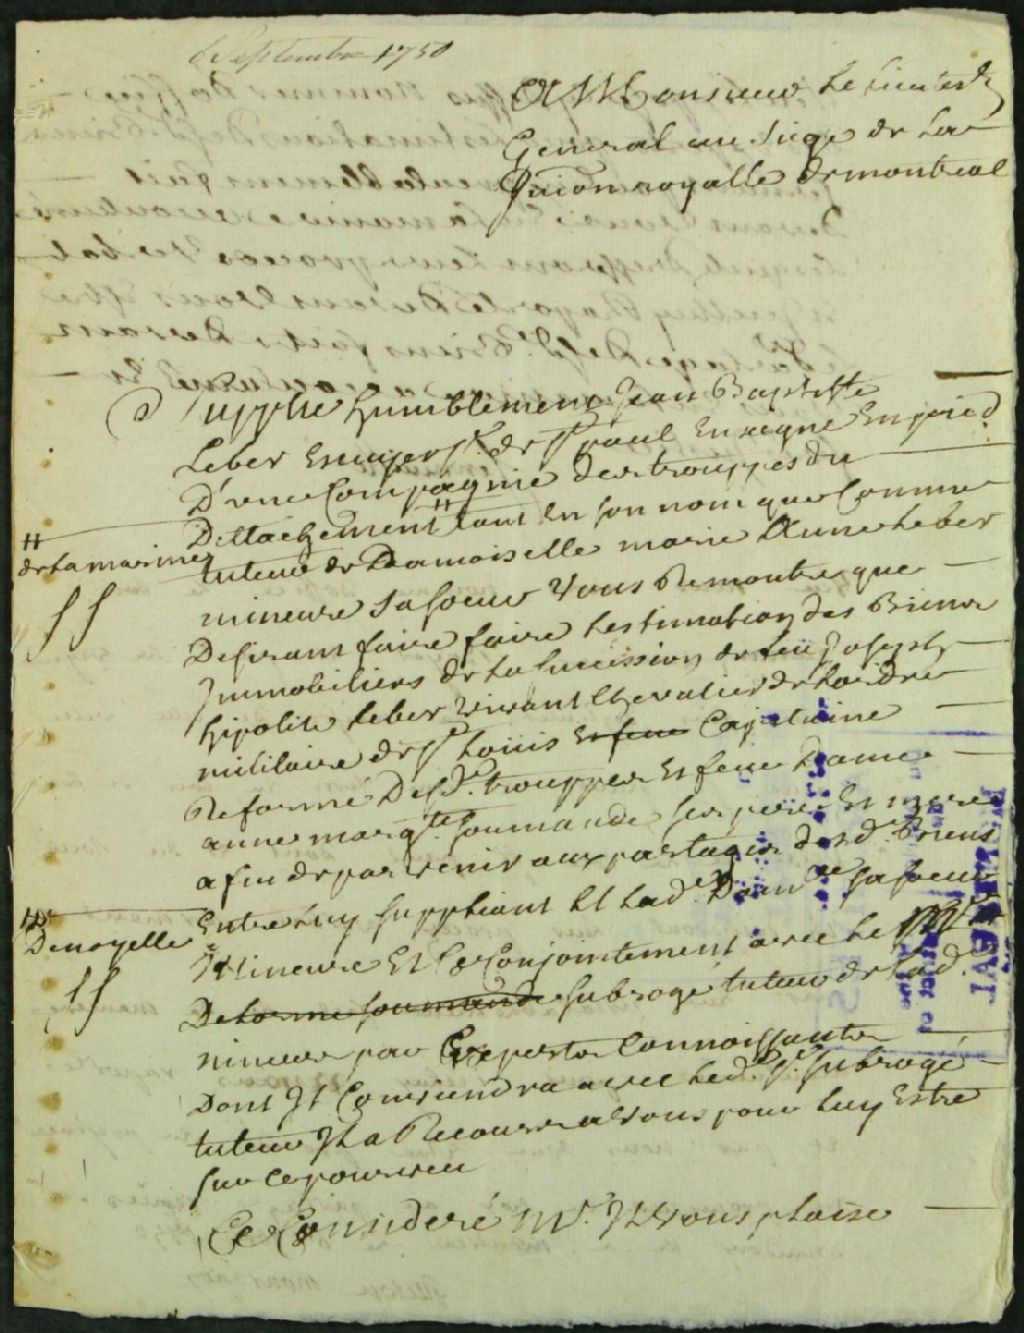 6 Septembre 1750
A Monsieur Le Lieuten.t
General au Siege de La
Juridiction royalle de montreal
Supplie humblement Jean Baptiste
Leber Ecuyer Sr. de St. paul Enseigne En pied
D'une Compagnie des trouppes du
Dettachement # tant En son nom que Comme
# de La marine
tuteur de Damoiselle marie Anne Leber
mineure Sa Soeur Vous Remontre que
Desirant faire faire Lestimation des Biens
Immobiliers de La Succession de feu Joseph
hipolite Leber vivant Chevalier de Lordre
militaire de St. Louis Et feue Capitaine
Reformé Desd. trouppes Et feue Dame
anne marg.te Soumande Ses pere Et mere
afin de parvenir aux partages desd. Biens
Entre Luy Suppliant Et Lad. Dam.lle Sa Soeur
Mineure Et Ce Conjointement avec Le
# Denoyelle
Delorme Soumande Subrogé tuteur de Lad.
mineure par Experts Connoissants
Dont Il Conviendra avec Led. Sr. Subrogé
tuteur Il a Recours a Vous pour Luy Estre
Sur Ce pourveu
Ce Consideré Mr. Il Vous plaise